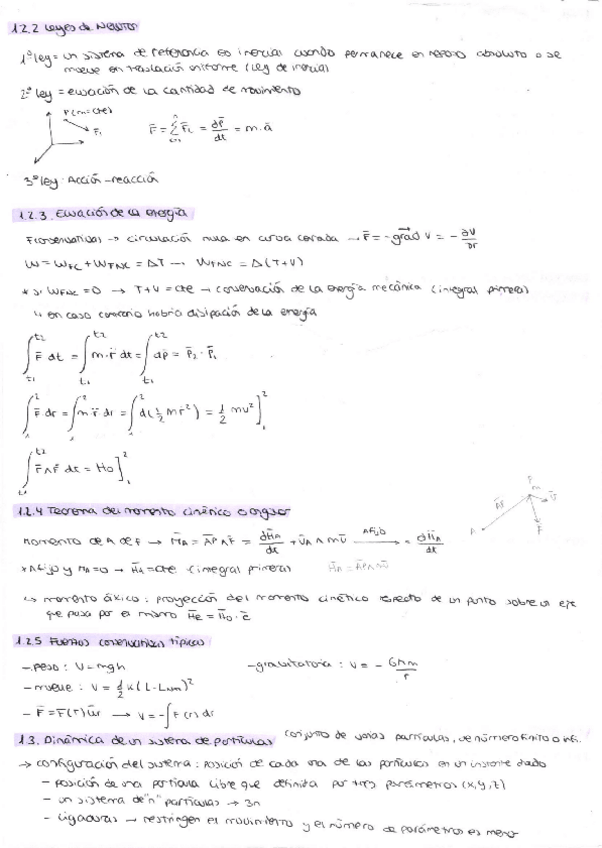 1.2.2 Leyes de Newton
1ª ley = un sistema de referencia es inercial cuando permanece en reposo absoluto o se
mueve en traslación uniforme (Ley de inercia)
2ª ley = ecuación de la cantidad de movimiento
P(m=cte)
F̄₁
F̄ = Σ F̄ᵢ = dp̄/dt = m·ā
3ª ley: Acción-reacción
1.2.3. Ecuación de la energía
Fconservativas → circulación nula en curva cerrada → F̄ = -grad V = - ∂V/∂r
W = W_FC + W_FNC = ΔT → W_FNC = Δ(T+V)
* si W_FNC = 0 → T+V = cte → conservación de la energía mecánica (integral primera)
↳ en caso contrario habría disipación de la energía
∫ F̄ dt = ∫ m·r̈ dt = ∫ dp̄ = p̄₂ - p̄₁
∫ F̄ dr = ∫ m·r̈ dr = ∫ d(½ mṙ²) = ½ mv²]₁²
∫ r̄∧F̄ dt = H₀]₁²
1.2.4 Teorema del momento cinético o angular
Momento de A de F → M̄_A = AP∧F̄ = dH̄_A/dt + v̄_A∧mv̄ A fijo → = dH̄_A/dt
* A fijo y M_A=0 → H̄_A = cte (integral primera) H̄_A = AP∧mv̄
A P m AP v̄ F
↳ momento áxico: proyección del momento cinético respecto de un punto sobre un eje
que pasa por el mismo H̄e = H̄₀·ē
1.2.5 Fuerzas conservativas típicas
- peso: V = mgh - gravitatoria: V = - GMm/r
- muelle: V = ½ K(L-Lnat)²
- F̄ = F(r) ūr → V = -∫F(r) dr
1.3. Dinámica de un sistema de partículas conjunto de varias partículas, de número finito o infi.
→ configuración del sistema: posición de cada una de las partículas en un instante dado
- posición de una partícula libre queda definida por tres parámetros (x,y,z)
- un sistema de "n" partículas → 3n
- Ligaduras → restringen el movimiento y el número de parámetros es menor